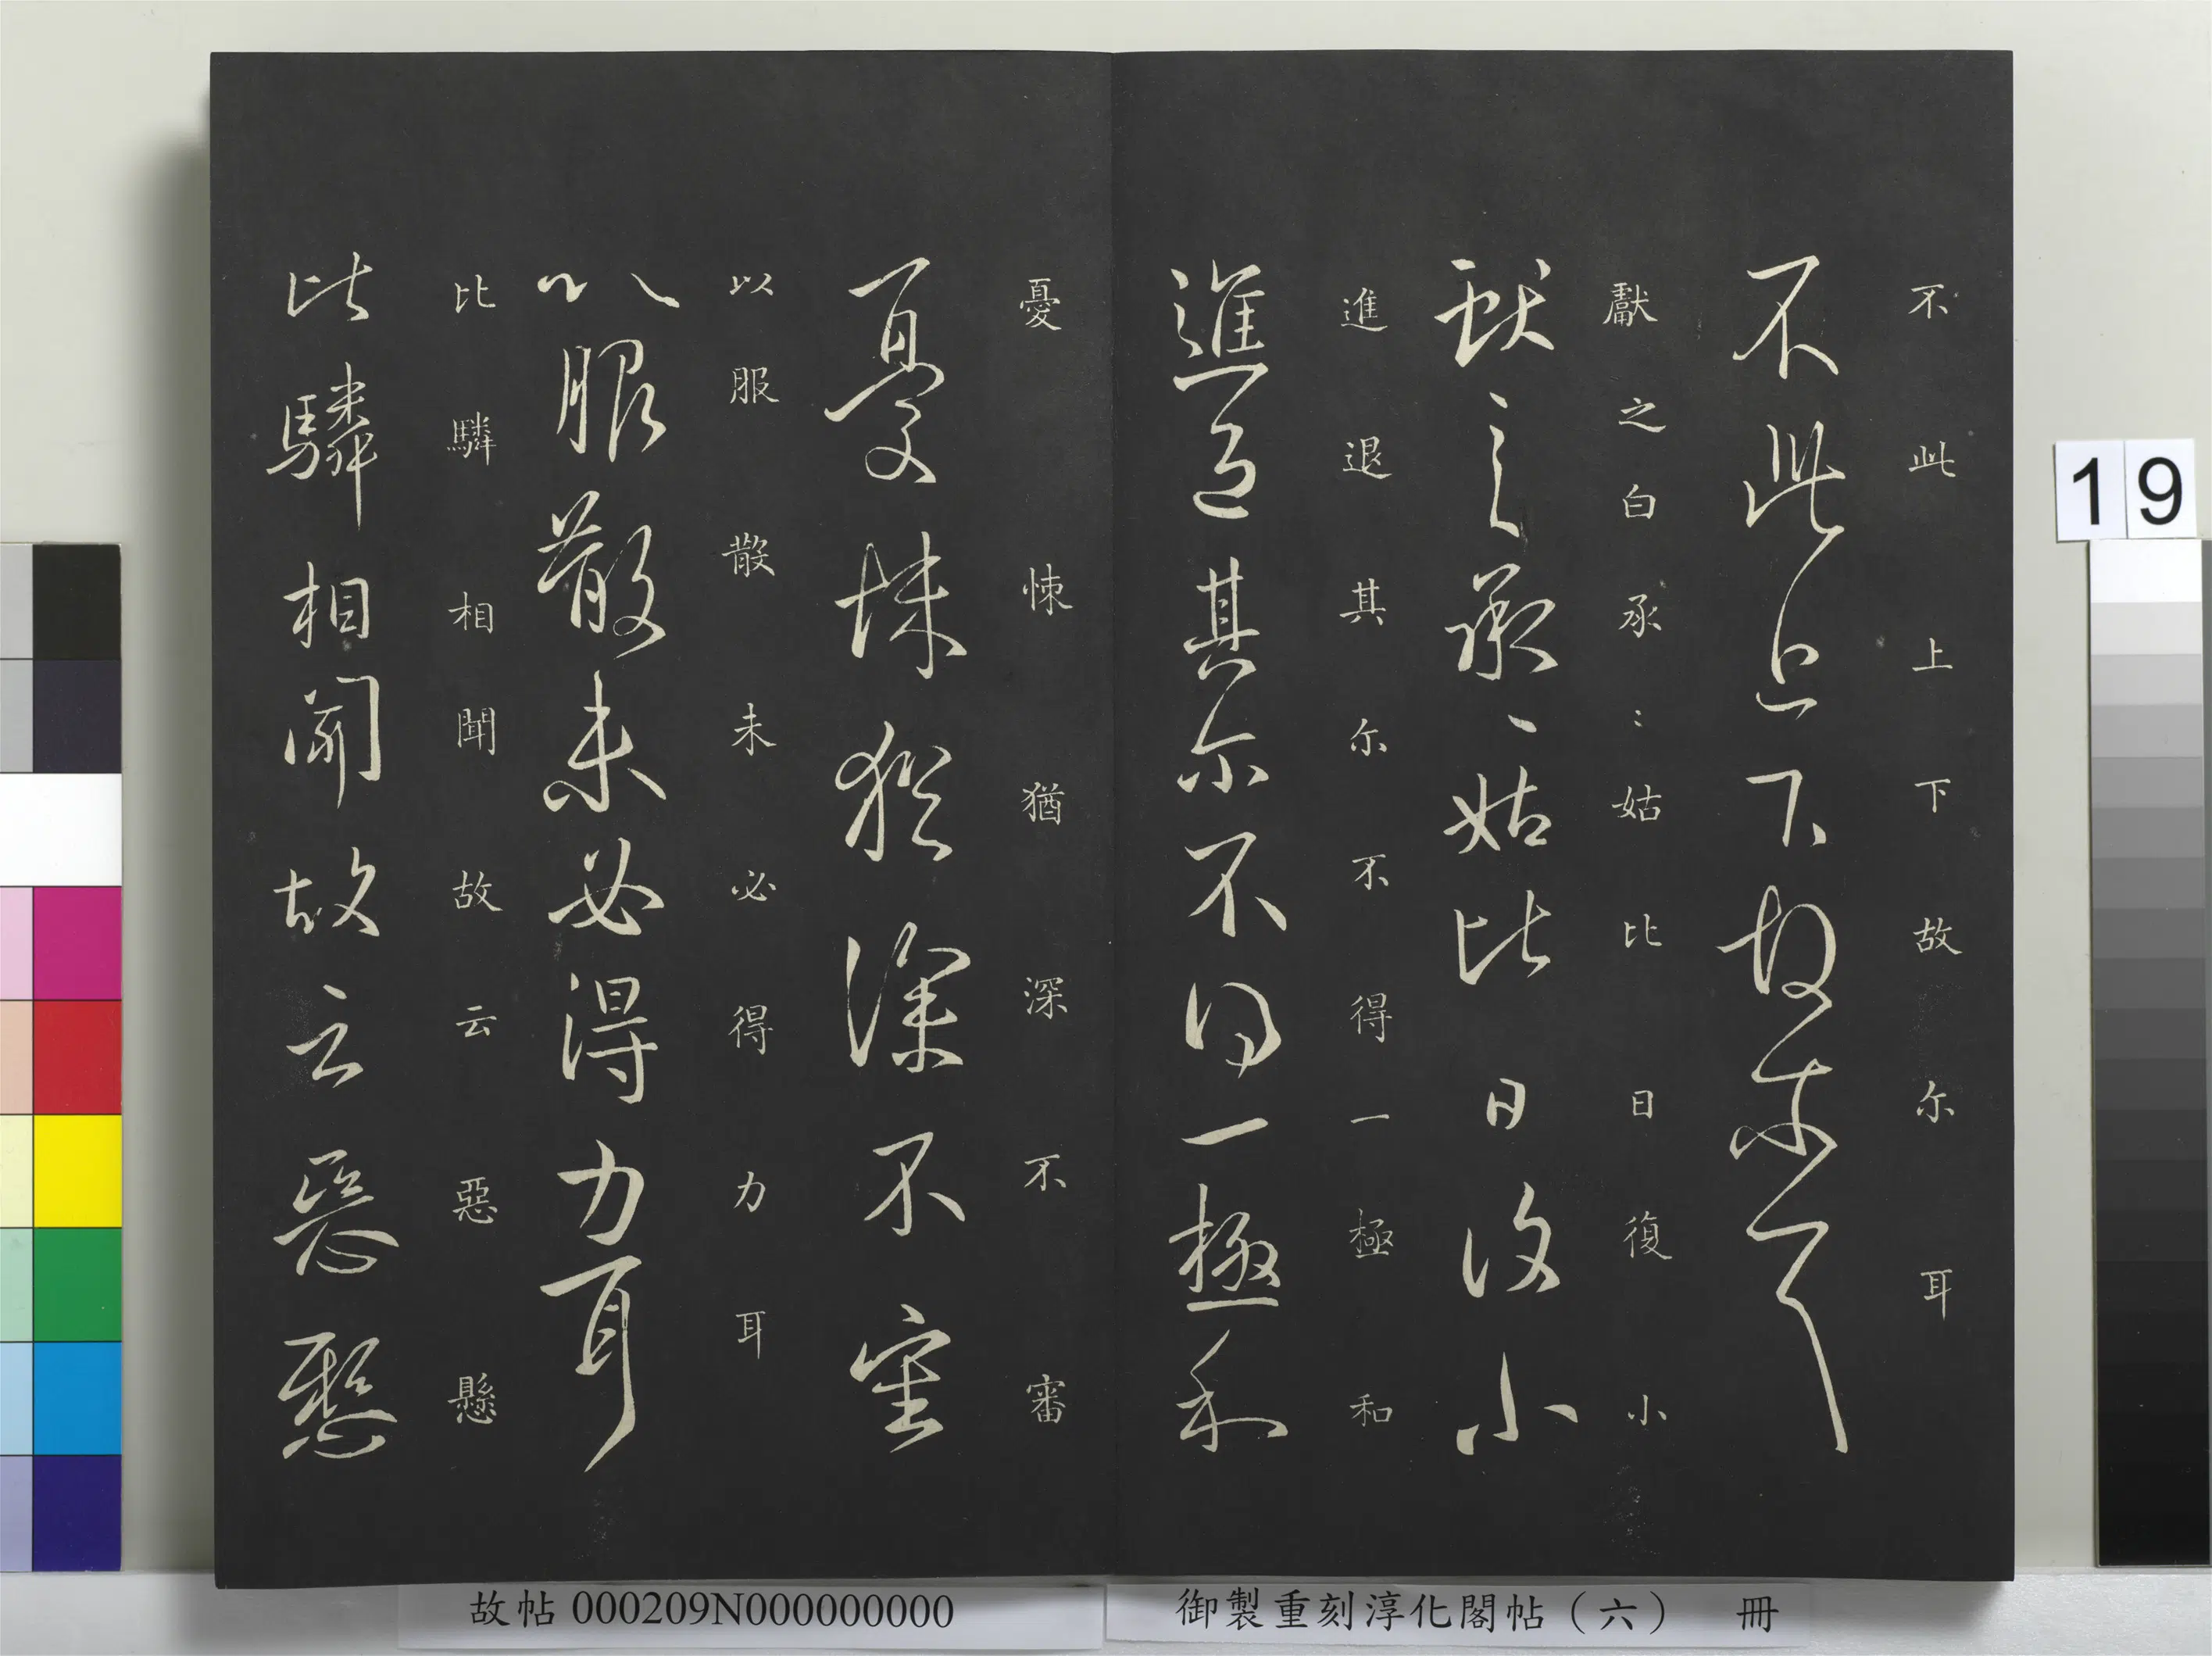 不此上下故尓耳
不此上下故尓耳
獻之白承〻姑比日復小
獻之白承〻姑比日復小
進退其尓不得一極和
進退其尓不得一極和
憂悚猶深不審
憂悚猶深不審
以服散未必得力耳
以服散未必得力耳
比驎相聞故云惡懸
比驎相聞故云惡懸
19
故帖 000209N000000000
御製重刻淳化閣帖（六） 冊